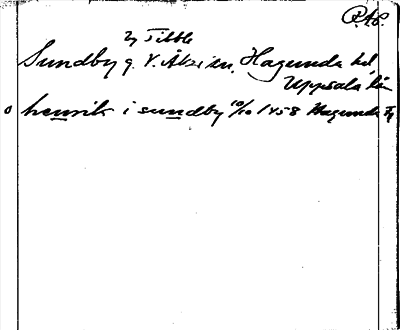 Tibble
Sundby g. V. Åker sn, Hagunda hd,
Uppsala län
o henrik i sundby 10/10 1458 Hagunda